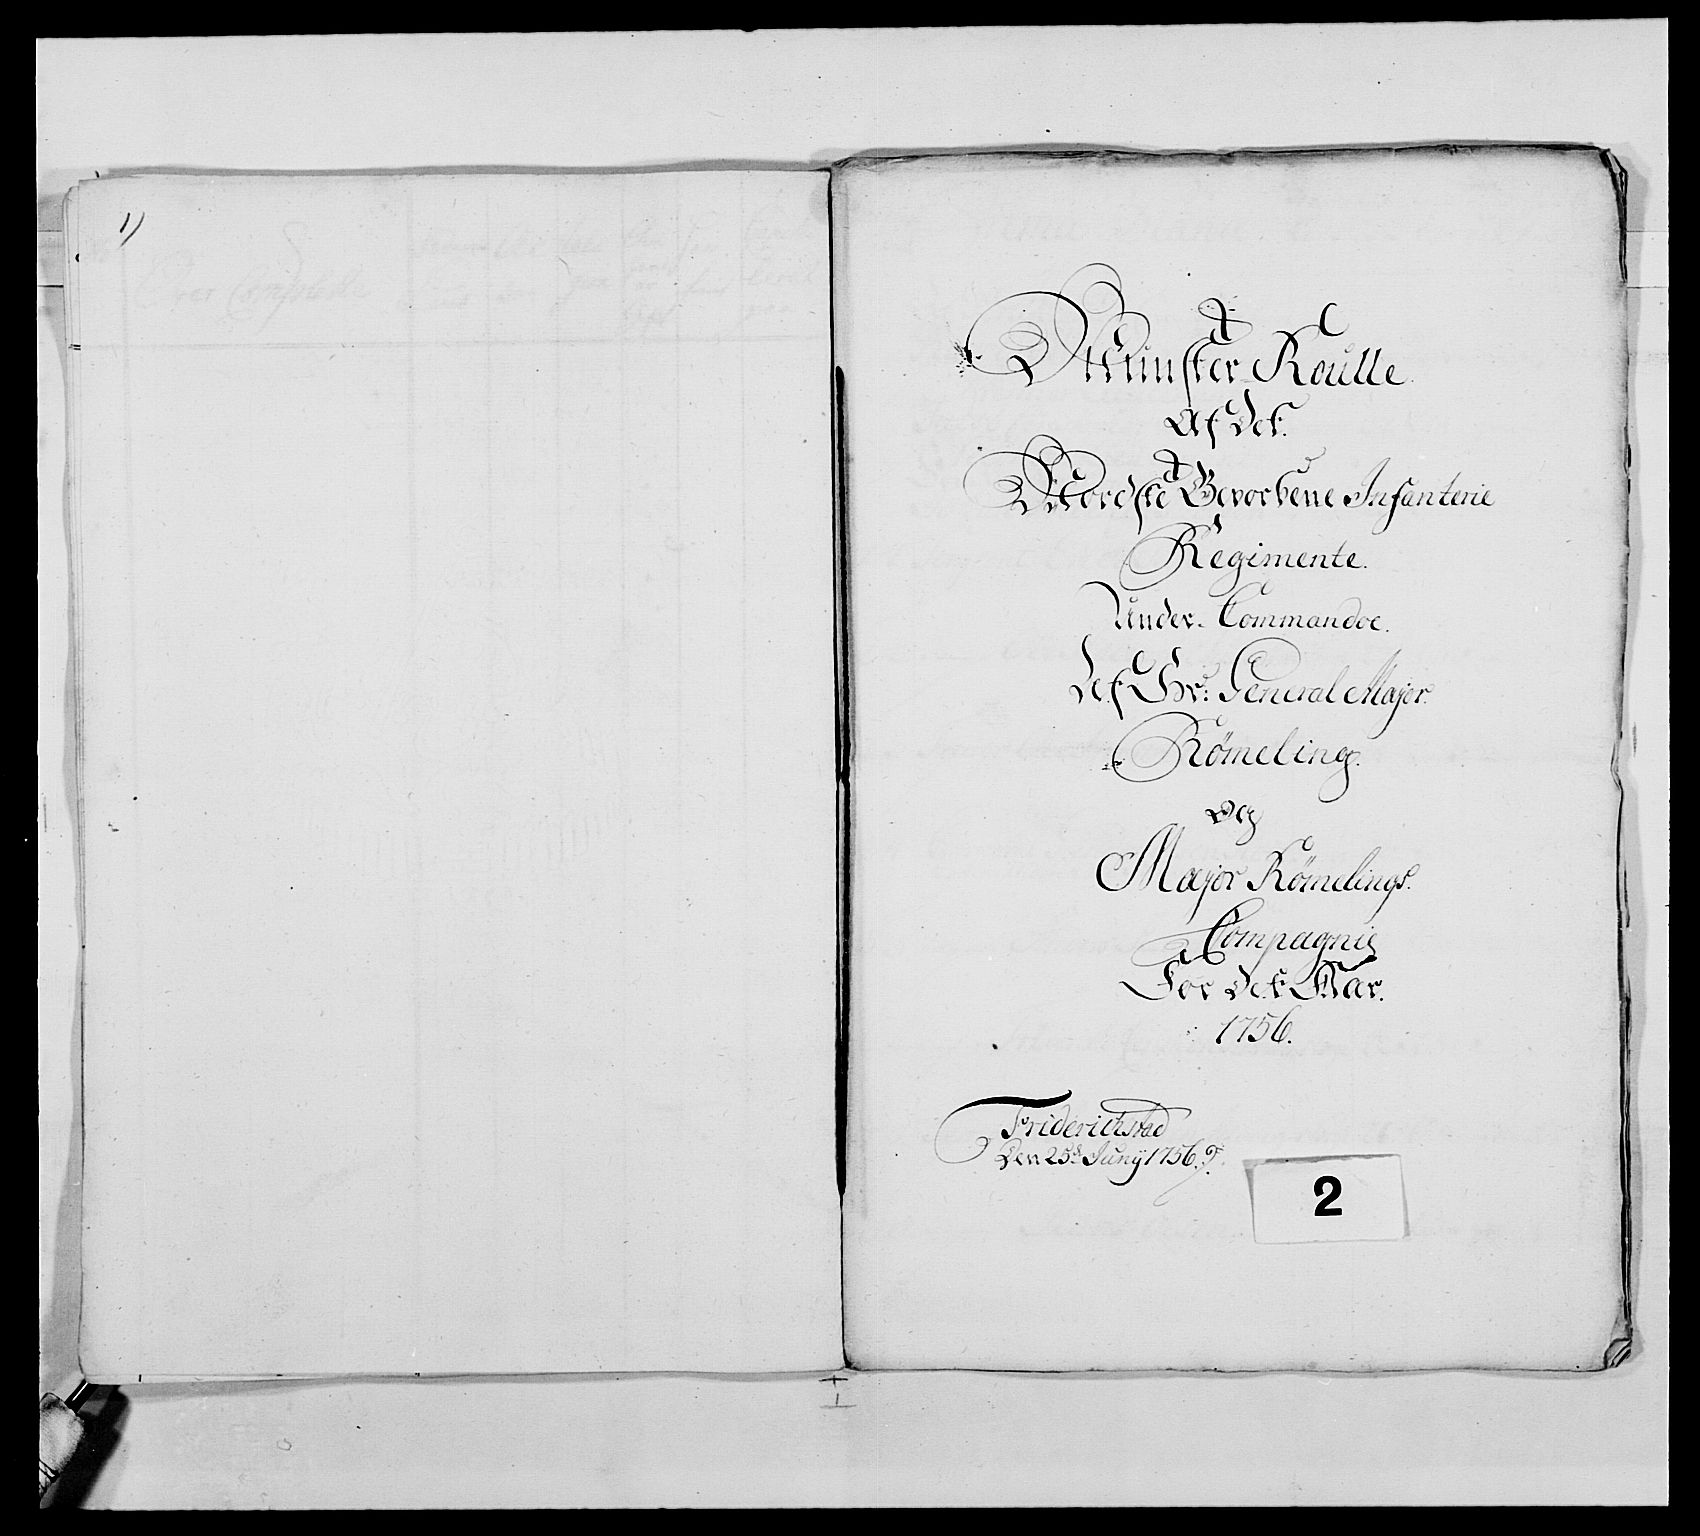 1)
Munster Roulle
Af det
Nordske Gevorbene Infanterie
Regimente.
Under Commandoe.
Af Hr: General Major
Römeling.
og
Major Römelings.
Compagnie
For det Aar.
1756.
Friderichstad
Den 25de Junÿ 1756.
2